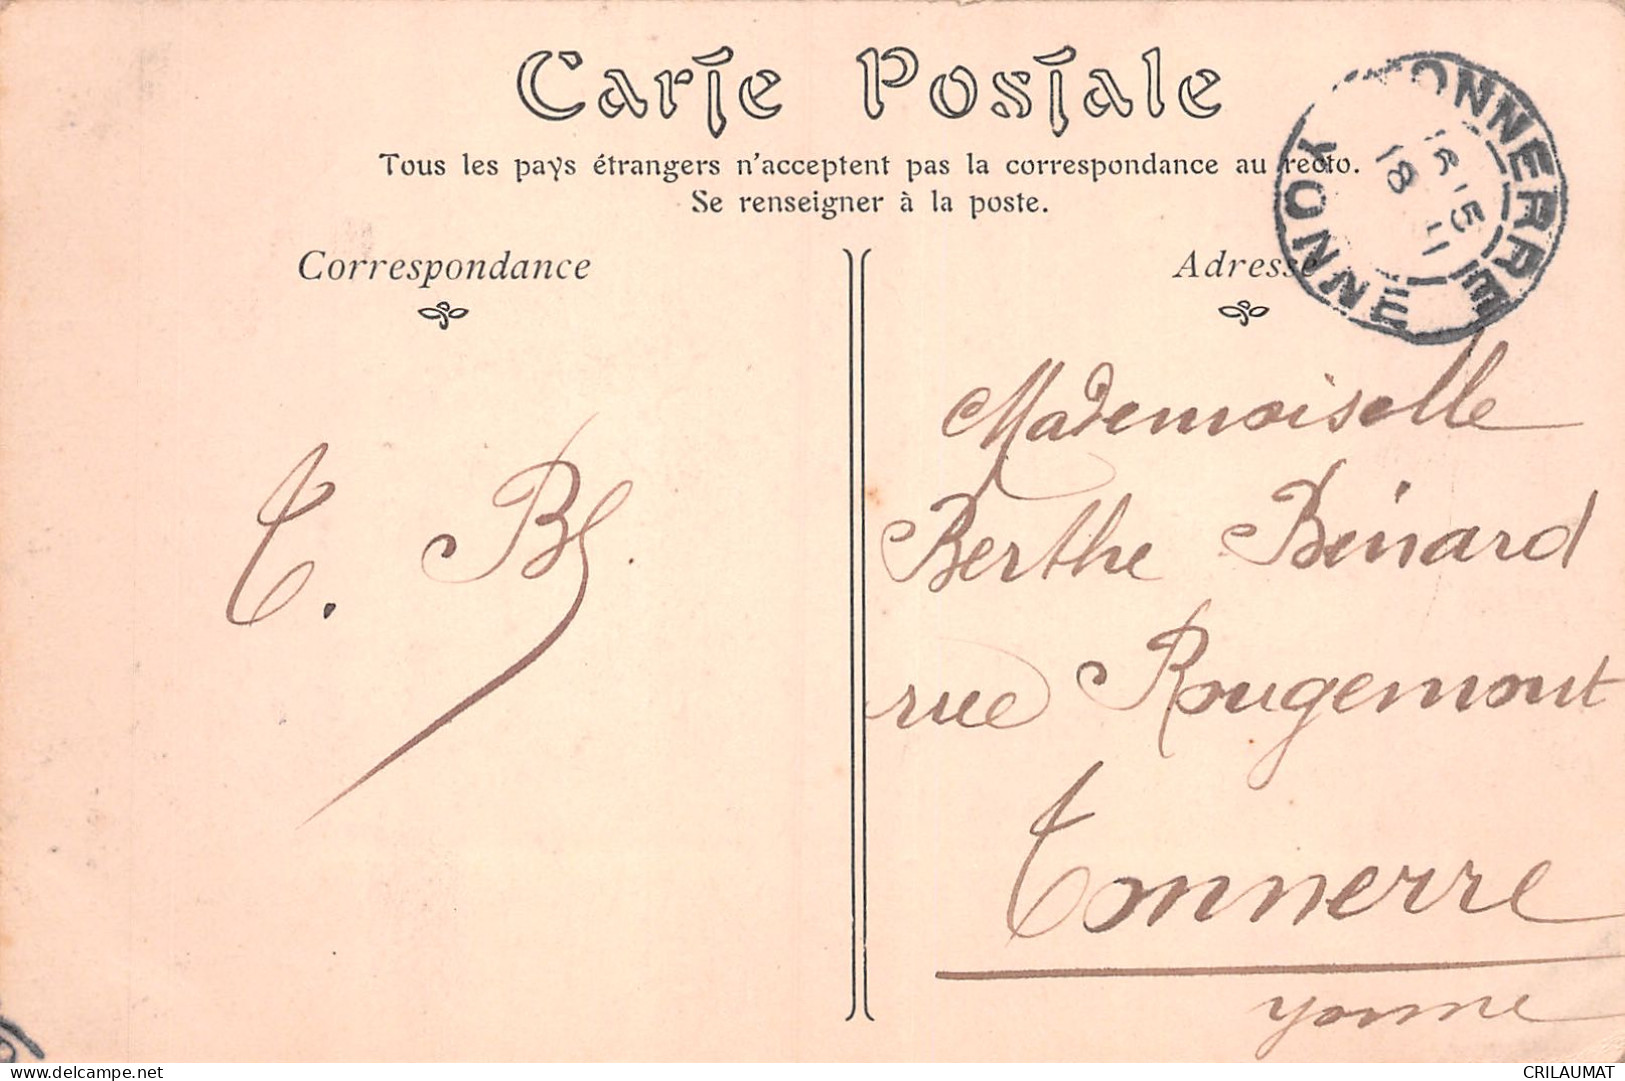 Carte Postale
Tous les pays étrangers n'acceptent pas la correspondance au recto.
Se renseigner à la poste.
Correspondance
Adresse
TONNERRE
YONNE
18
T. B.
Mademoiselle
Berthe Bénard
rue Rougemont
Tonnerre
Yonne
delcampe.net
CRILAUMAT